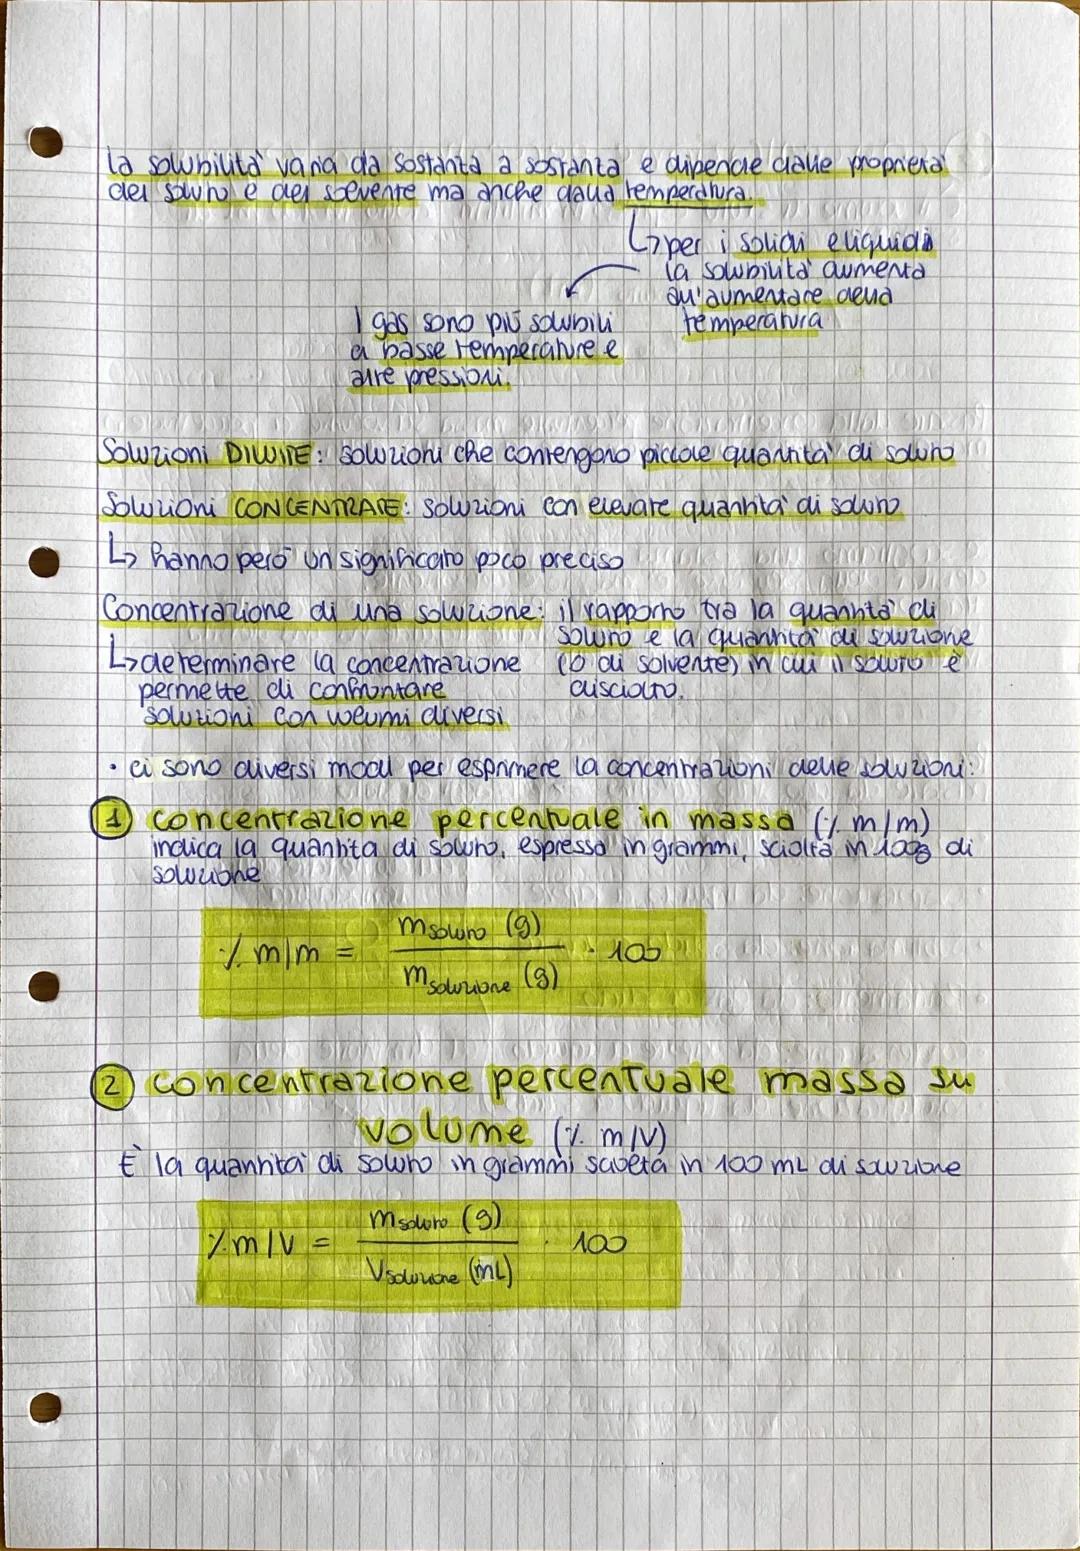 la solubilità varia da sostanza a sostanza e dipende dalle proprietà
del soluto e del solvente ma anche dalla temperatura.
↳ per i solidi e liquidi
la solubilità aumenta
all'aumentare della
temperatura
I gas sono più solubili
a basse temperature e
alte pressioni.
Soluzioni DILUITE: soluzioni che contengono piccole quantità di soluto
Soluzioni CONCENTRATE: soluzioni con elevate quantità di soluto
↳ hanno però un significato poco preciso
Concentrazione di una soluzione: il rapporto tra la quantità di
soluto e la quantità di soluzione
(o di solvente) in cui il soluto è
disciolto.
↳ determinare la concentrazione
permette di confrontare
soluzioni con volumi diversi
• ci sono diversi modi per esprimere la concentrazioni delle soluzioni:
1 concentrazione percentuale in massa (% m/m)
indica la quantita di soluto, espressa in grammi, sciolta in 100g di
soluzione
% m/m = m soluto (g) / m soluzione (g) · 100
2 concentrazione percentuale massa su
volume (% m/V)
È la quantità di soluto in grammi sciolta in 100 mL di soluzione
% m/V = m soluto (g) / V soluzione (mL) · 100